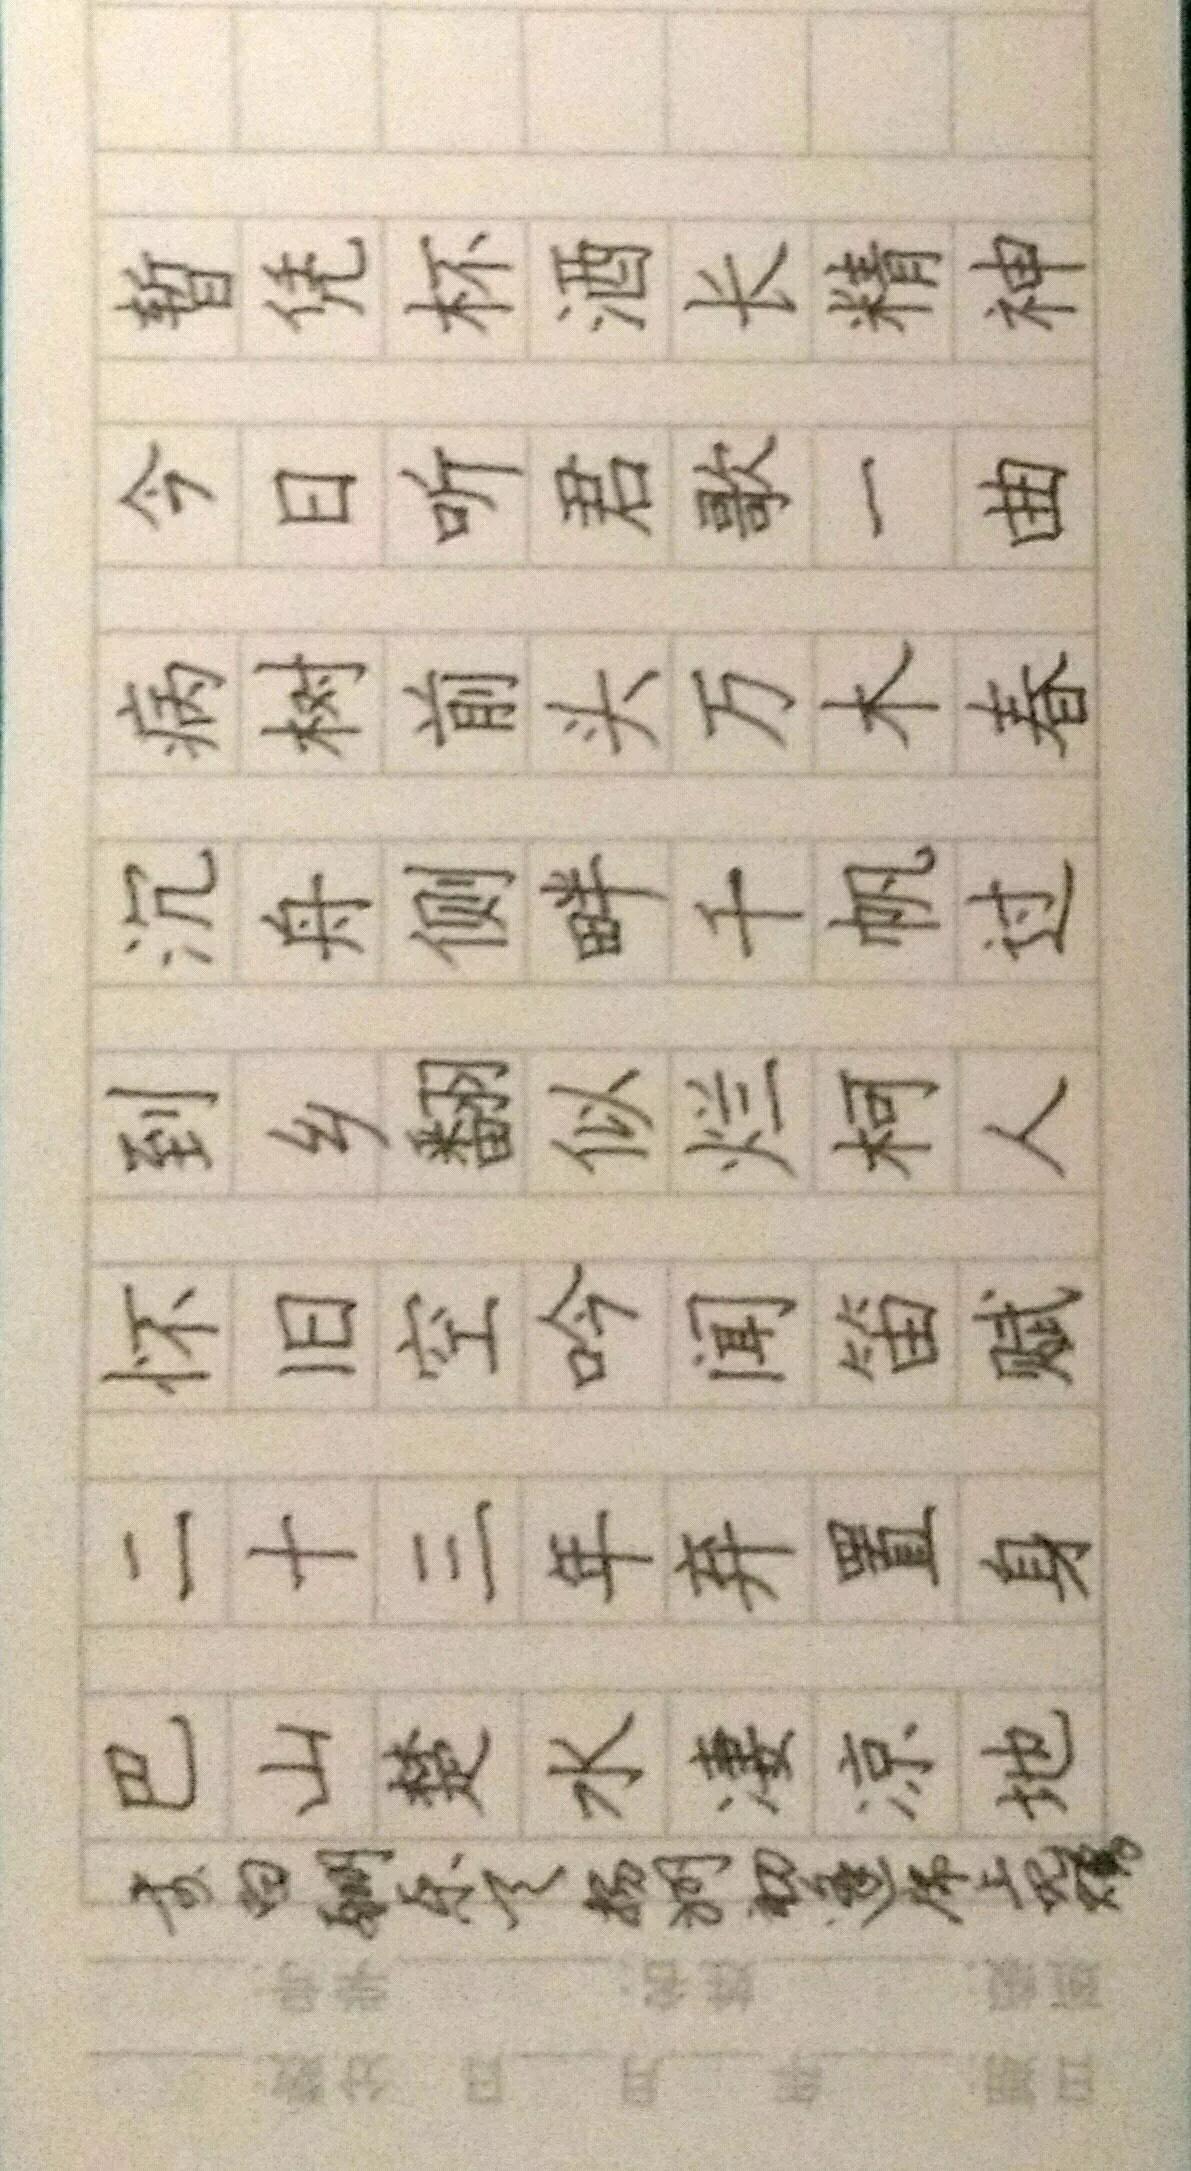 酬乐天扬州初逢席上见赠
巴山楚水凄凉地
二十三年弃置身
怀旧空吟闻笛赋
到乡翻似烂柯人
沉舟侧畔千帆过
病树前头万木春
今日听君歌一曲
暂凭杯酒长精神
班级: 姓名: 学号:
日期: 年 月 日 分数: